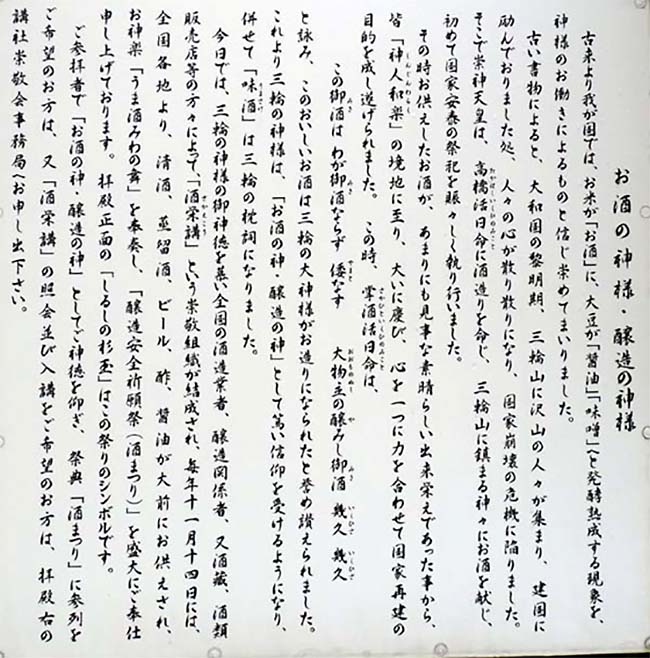 お酒の神様・醸造の神様
古来より我が国では、お米が「お酒」に、大豆が「醤油」「味噌」へと発酵熟成する現象を、
神様のお働きによるものと信じ崇めてまいりました。
古い書物によると、大和国の黎明期、三輪山に沢山の人々が集まり、建国に
励んでおりました処、人々の心が散り散りになり、国家崩壊の危機に陥りました。
そこで崇神天皇は、高橋活日命に酒造りを命じ、三輪山に鎮まる神々にお酒を献じ、
初めて国家安泰の祭祀を賑々しく執り行いました。
その時お供えしたお酒が、あまりにも見事な素晴らしい出来栄えであった事から、
皆「神人和楽」の境地に至り、大いに慶び、心を一つに力を合わせて国家再建の
目的を成し遂げられました。この時、掌酒活日命は、
この御酒は わが御酒ならず 倭なす 大物主の醸みし御酒 幾久 幾久
と詠み、このおいしいお酒は三輪の大神様がお造りになられたと誉め讃えられました。
これより三輪の神様は、「お酒の神・醸造の神」として篤い信仰を受けるようになり、
併せて「味酒」は三輪の枕詞になりました。
今日では、三輪の神様の御神徳を慕い全国の酒造業者、醸造関係者、又酒蔵、酒類
販売店等の方々によって、「酒栄講」という崇敬組織が結成され、毎年十一月十四日には、
全国各地より、清酒、蒸留酒、ビール、酢、醤油が大前にお供えされ、
お神楽「うま酒みわの舞」を奉奏し、「醸造安全祈願祭(酒まつり)」を盛大にご奉仕
申し上げております。拝殿正面の「しるしの杉玉」はこの祭りのシンボルです。
ご参拝者で「お酒の神・醸造の神」としてご神徳を仰ぎ、祭典「酒まつり」に参列を
ご希望のお方は、又「酒栄講」の照会並び入講をご希望のお方は、拝殿右の
講社崇敬会事務局へお申し出下さい。